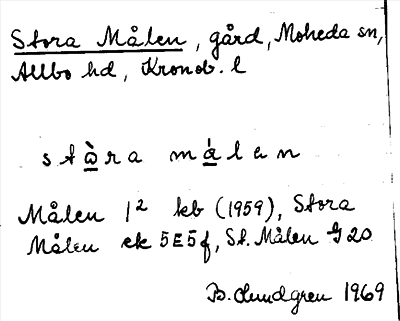 Stora Målen, gård, Moheda sn,
Allbo hd, Kronob. l
stàra málen
Målen 1² kb (1959), Stora
Målen ek 5E5f, St. Målen G20
B. Lundgren 1969